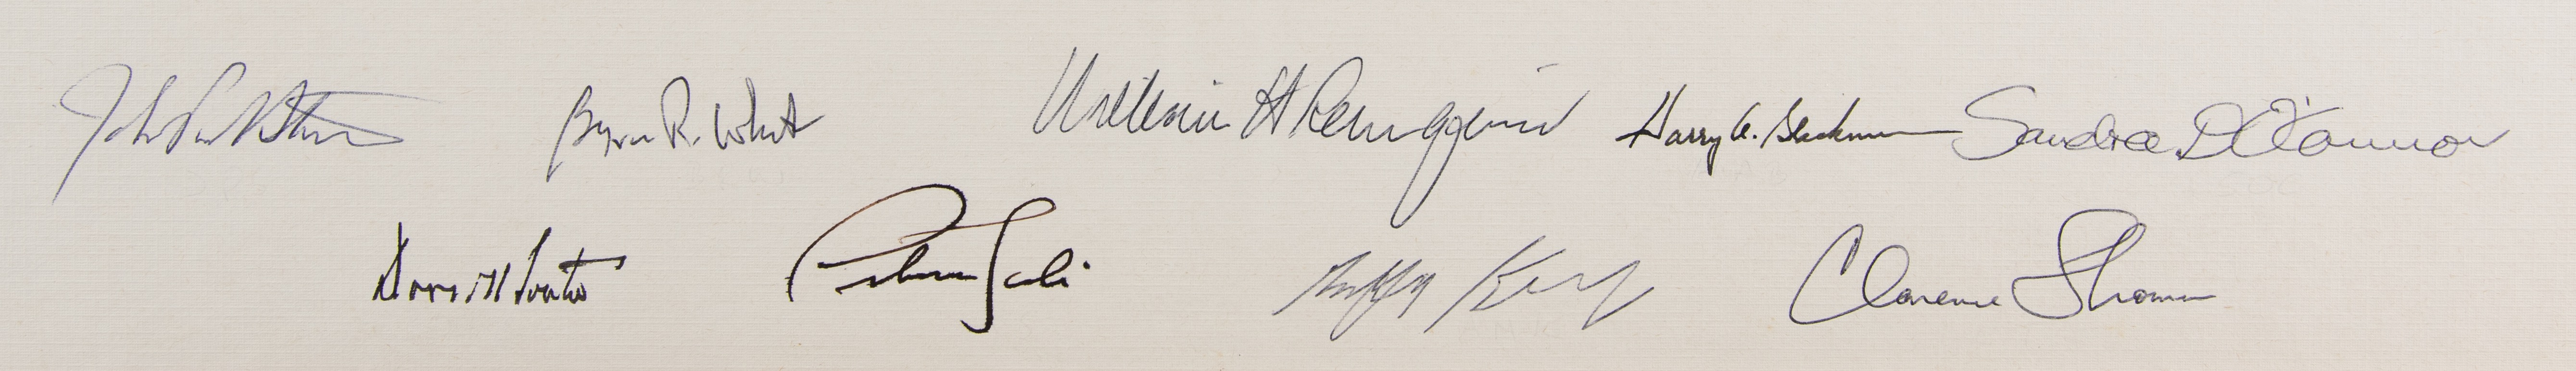 John Paul Stevens Byron R. White William H Rehnquist Harry A. Blackmun Sandra D O'Connor
David H Souter Antonin Scalia Anthony Kennedy Clarence Thomas